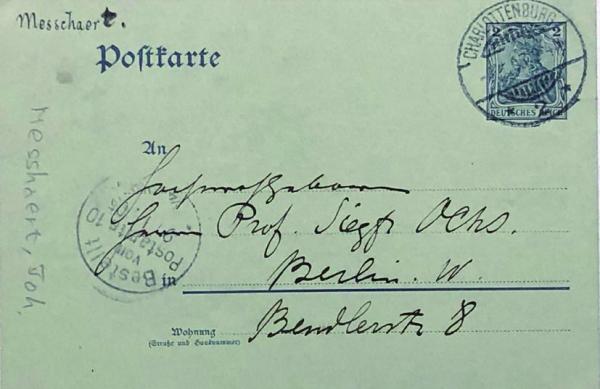 Messchaert.
Postkarte
CHARLOTTENBURG
2
2
DEUTSCHES REICH
* 2 *
An
Hochwohlgeboren
Herrn Prof. Siegfr. Ochs.
in Berlin. W.
Wohnung
(Straße und Hausnummer)
Bendlerstr 8
Bestellt
vom
Postamte 10
Messhaert, Joh.